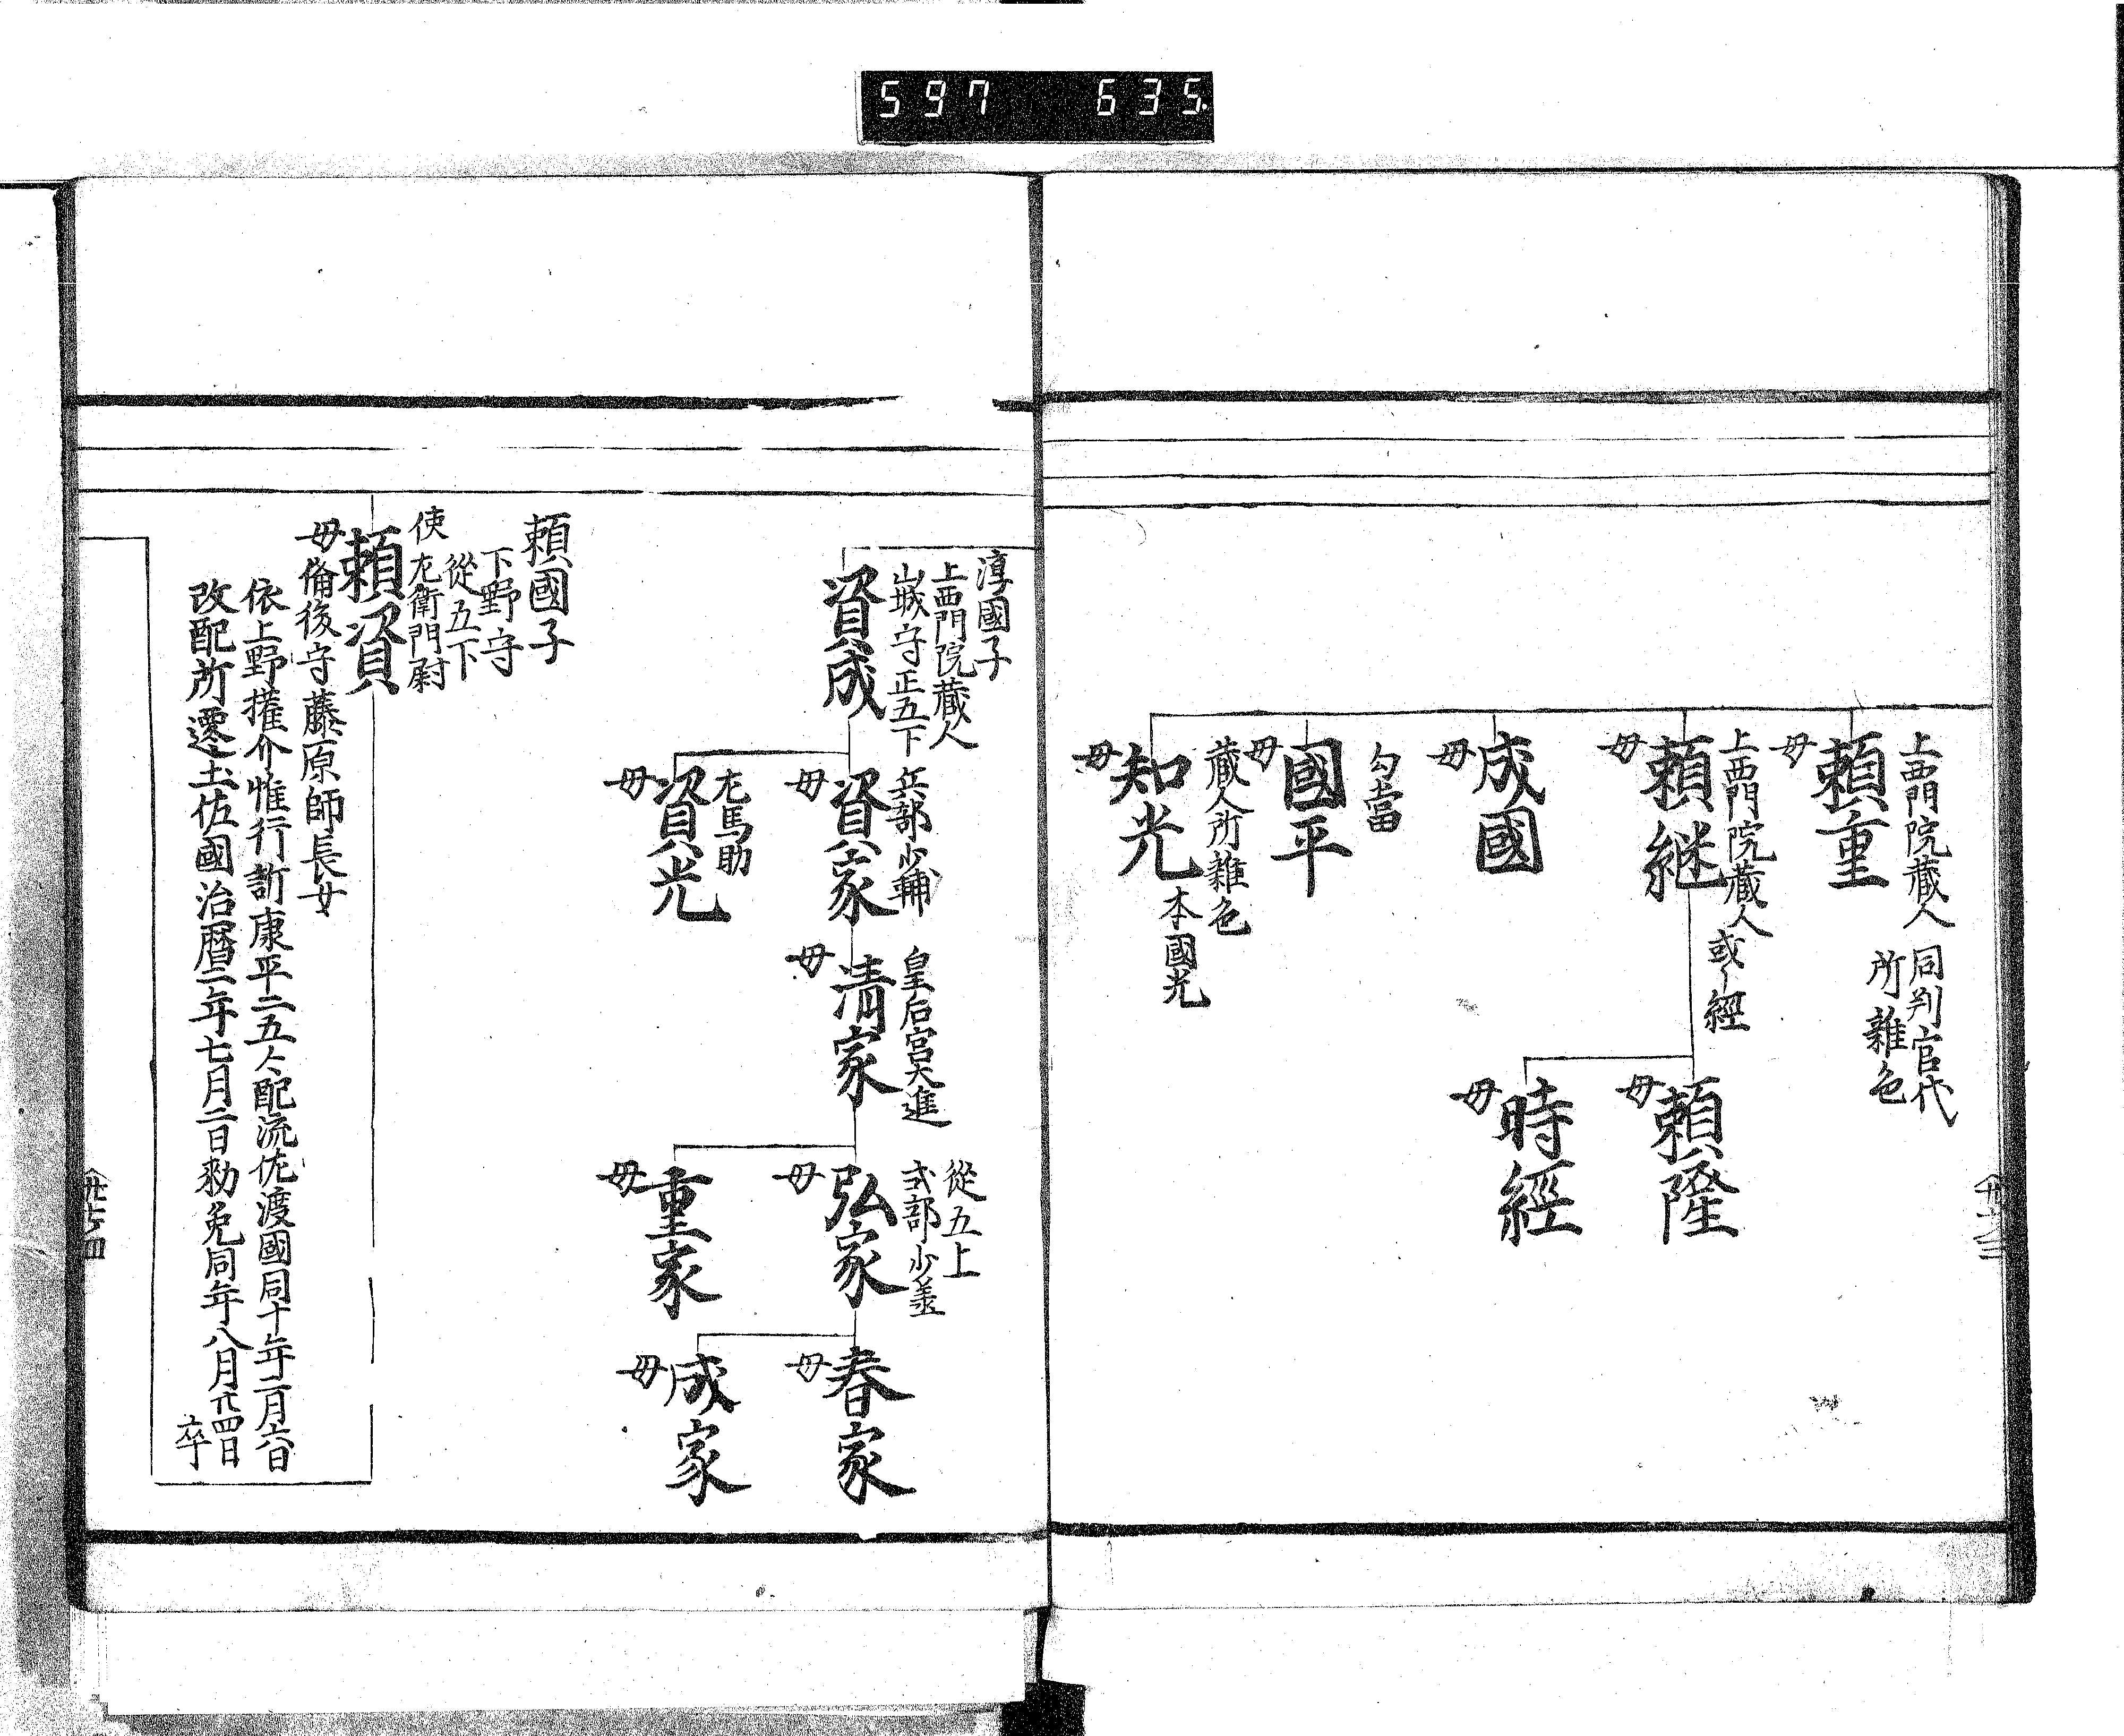 597 635
上西門院蔵人
同判官代
所雜色
頼重
母
上西門院蔵人
或〻經
頼継
母
頼隆
母
時經
母
成國
母
勾當
國平
母
蔵人所雜色
知光
母
本國光
淳國子
上西門院蔵人
山城守正五下
資成
兵部少輔
資家
母
皇后宮大進
清家
母
從五上
式部少丞
弘家
母
春家
母
成家
母
重家
母
左馬助
資光
母
頼國子
下野守
從五下
使
左衛門尉
頼資
母備後守藤原師長女
依上野権介惟行訴康平二五八配流佐渡國同十年二月六日
改配所遷土佐國治暦二年七月二日勅免同年八月廿四日
卒